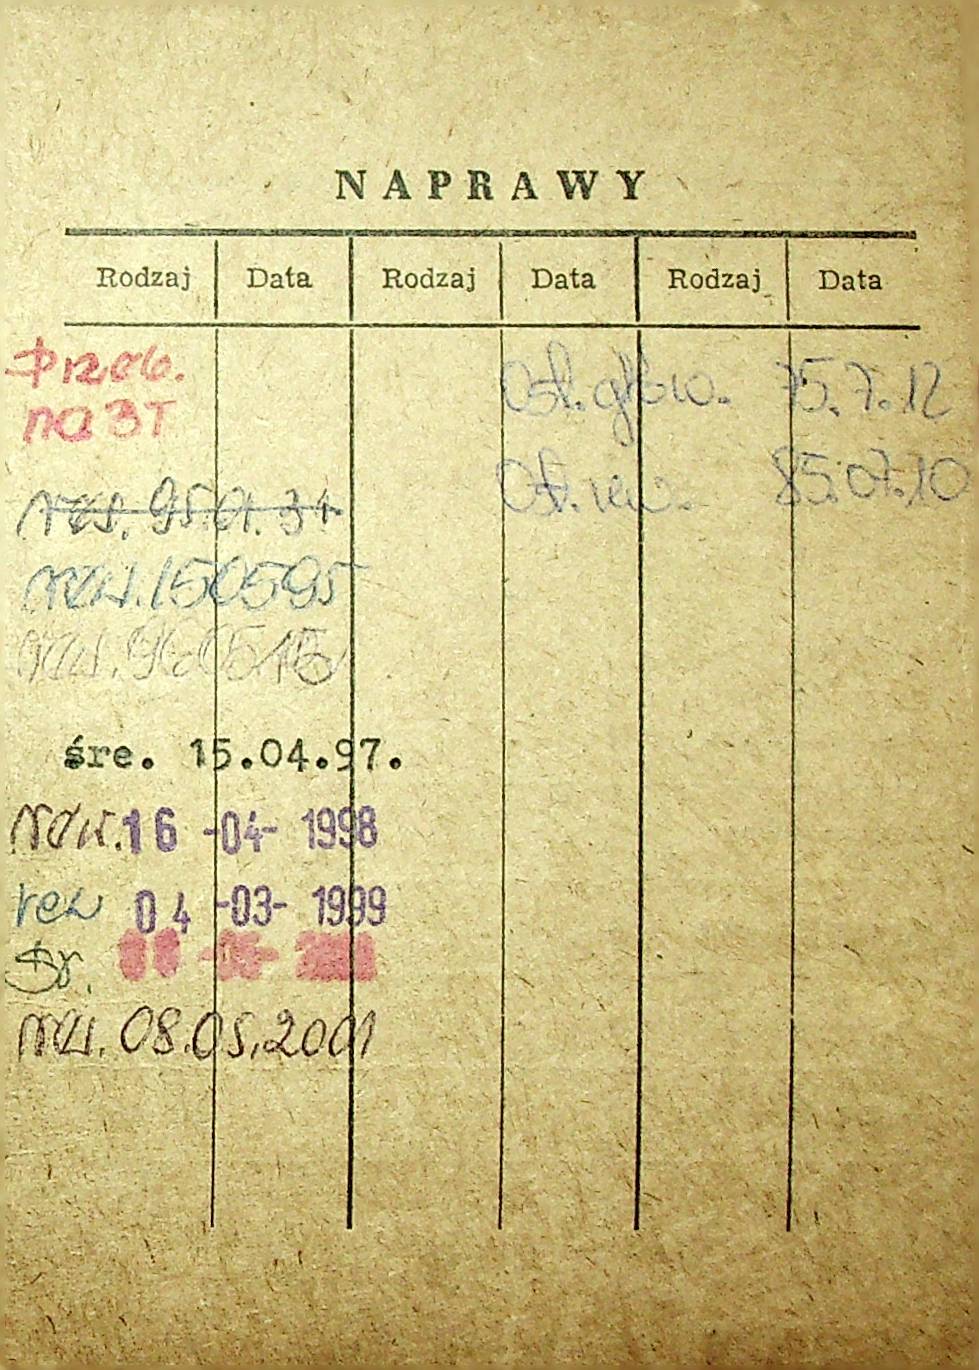 NAPRAWY
Rodzaj Data Rodzaj Data Rodzaj Data
Przeb.
na 3T
Ost. głów. 75.7.12
Ost. rew. 85.07.10
rew. 95.01.31
rew. 150595
rew. 960515
śre. 15.04.97.
rew. 16 -04- 1998
rew 04 -03- 1999
śr.
rew. 08.05.2001